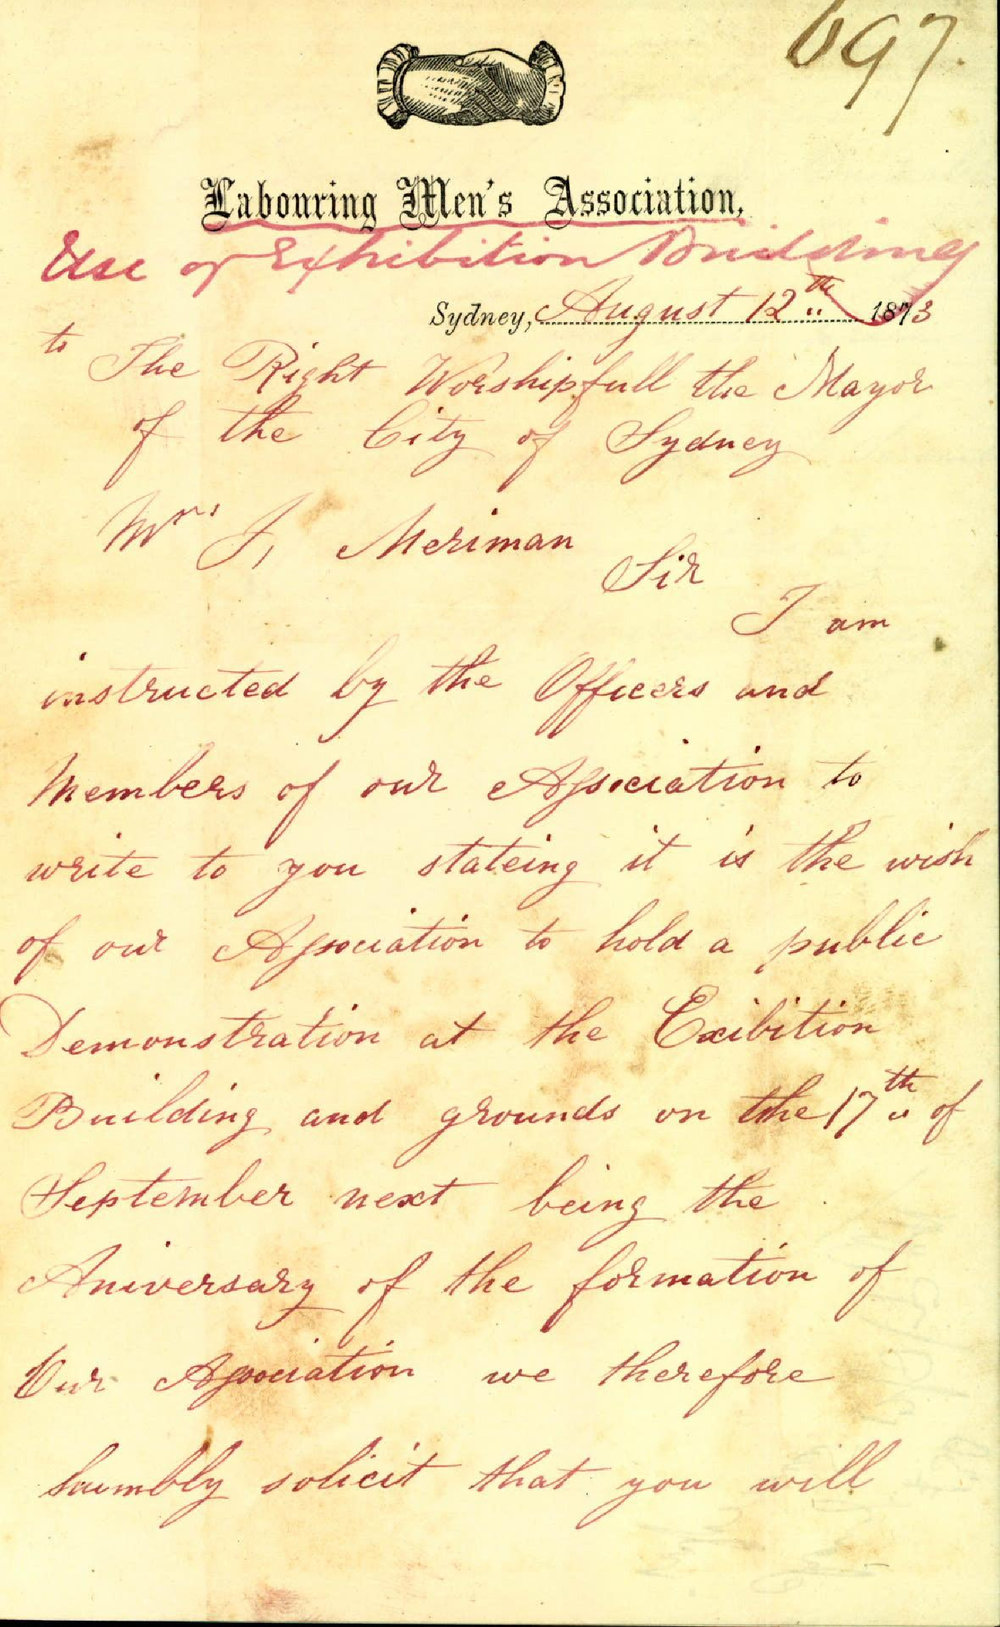 697.
Labouring Men's Association,
Use of Exhibition Building
Sydney, August 12th 1873
to The Right Worshipfull the Mayor
of the City of Sydney
Mr J, Meriman
Sir
I am
instructed by the Officers and
Members of our Association to
write to you stateing it is the wish
of our Association to hold a public
Demonstration at the Exibition
Building and grounds on the 17th of
September next being the
Aniversary of the formation of
Our Association we therefore
humbly solicit that you will